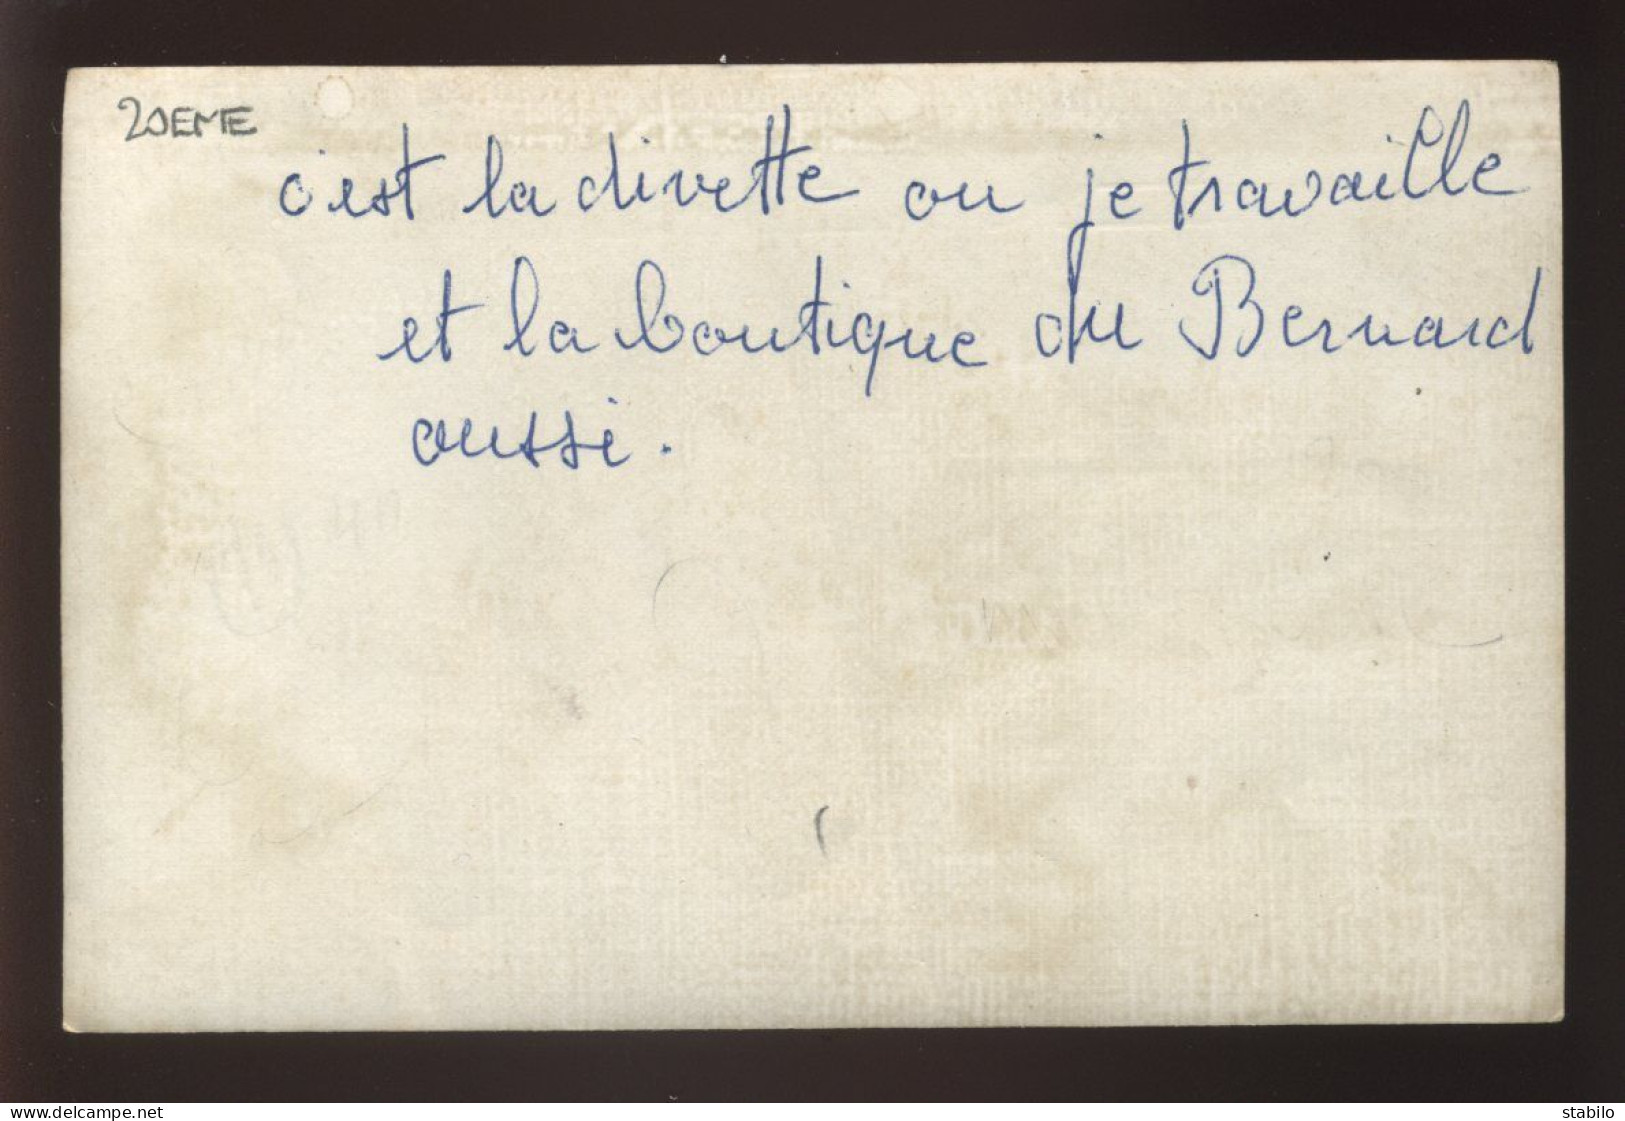 20EME
c'est la divette ou je travaille
et la boutique du Bernard
aussi.
delcampe.net
stabilo